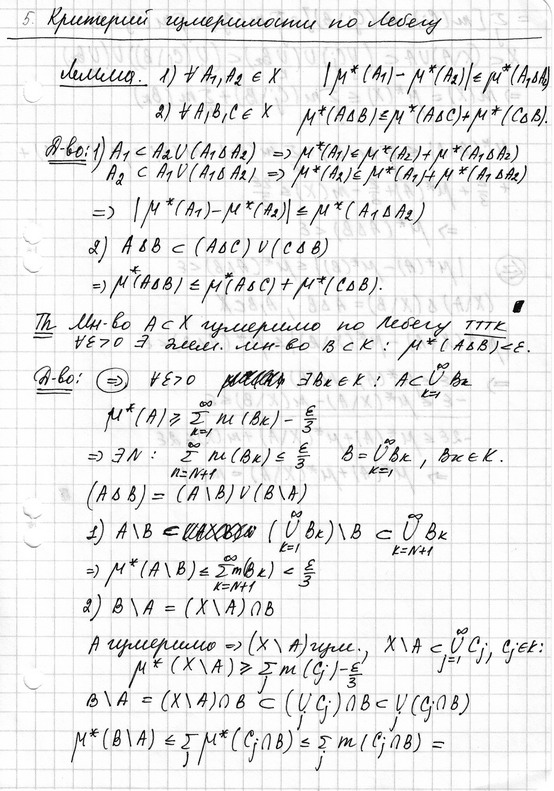 5. Критерий измеримости по Лебегу
Лемма. 1) ∀ A₁, A₂ ∈ X |μ*(A₁) - μ*(A₂)| ≤ μ*(A₁ΔA₂)
2) ∀ A, B, C ∈ X μ*(AΔB) ≤ μ*(AΔC) + μ*(CΔB).
Д-во: 1) A₁ ⊂ A₂ ∪ (A₁ΔA₂) ⇒ μ*(A₁) ≤ μ*(A₂) + μ*(A₁ΔA₂)
A₂ ⊂ A₁ ∪ (A₁ΔA₂) ⇒ μ*(A₂) ≤ μ*(A₁) + μ*(A₁ΔA₂)
⇒ |μ*(A₁) - μ*(A₂)| ≤ μ*(A₁ΔA₂)
2) AΔB ⊂ (AΔC) ∪ (CΔB)
⇒ μ*(AΔB) ≤ μ*(AΔC) + μ*(CΔB).
Th Мн-во A ⊂ X измеримо по Лебегу ТТТК
∀ε>0 ∃ элем. мн-во B ⊂ K : μ*(AΔB) < ε.
Д-во: ⇒ ∀ε>0 ∃Bₖ ∈ K : A ⊂ ∪_{k=1}^{∞} Bₖ
μ*(A) ≥ Σ_{k=1}^{∞} m(Bₖ) - ε/3
⇒ ∃N : Σ_{n=N+1}^{∞} m(Bₖ) ≤ ε/3 B = ∪_{k=1}^{∞} Bₖ , Bₖ ∈ K.
(AΔB) = (A \ B) ∪ (B \ A)
1) A \ B ⊂ (∪_{k=1}^{∞} Bₖ) \ B ⊂ ∪_{k=N+1}^{∞} Bₖ
⇒ μ*(A \ B) ≤ Σ_{k=N+1}^{∞} m(Bₖ) < ε/3
2) B \ A = (X \ A) ∩ B
A измеримо ⇒ (X \ A) изм., X \ A ⊂ ∪_{j=1}^{∞} Cⱼ, Cⱼ ∈ K :
μ*(X \ A) ≥ Σ_j m(Cⱼ) - ε/3
B \ A = (X \ A) ∩ B ⊂ (∪_j Cⱼ) ∩ B ⊂ ∪_j (Cⱼ ∩ B)
μ*(B \ A) ≤ Σ_j μ*(Cⱼ ∩ B) ≤ Σ_j m(Cⱼ ∩ B) =